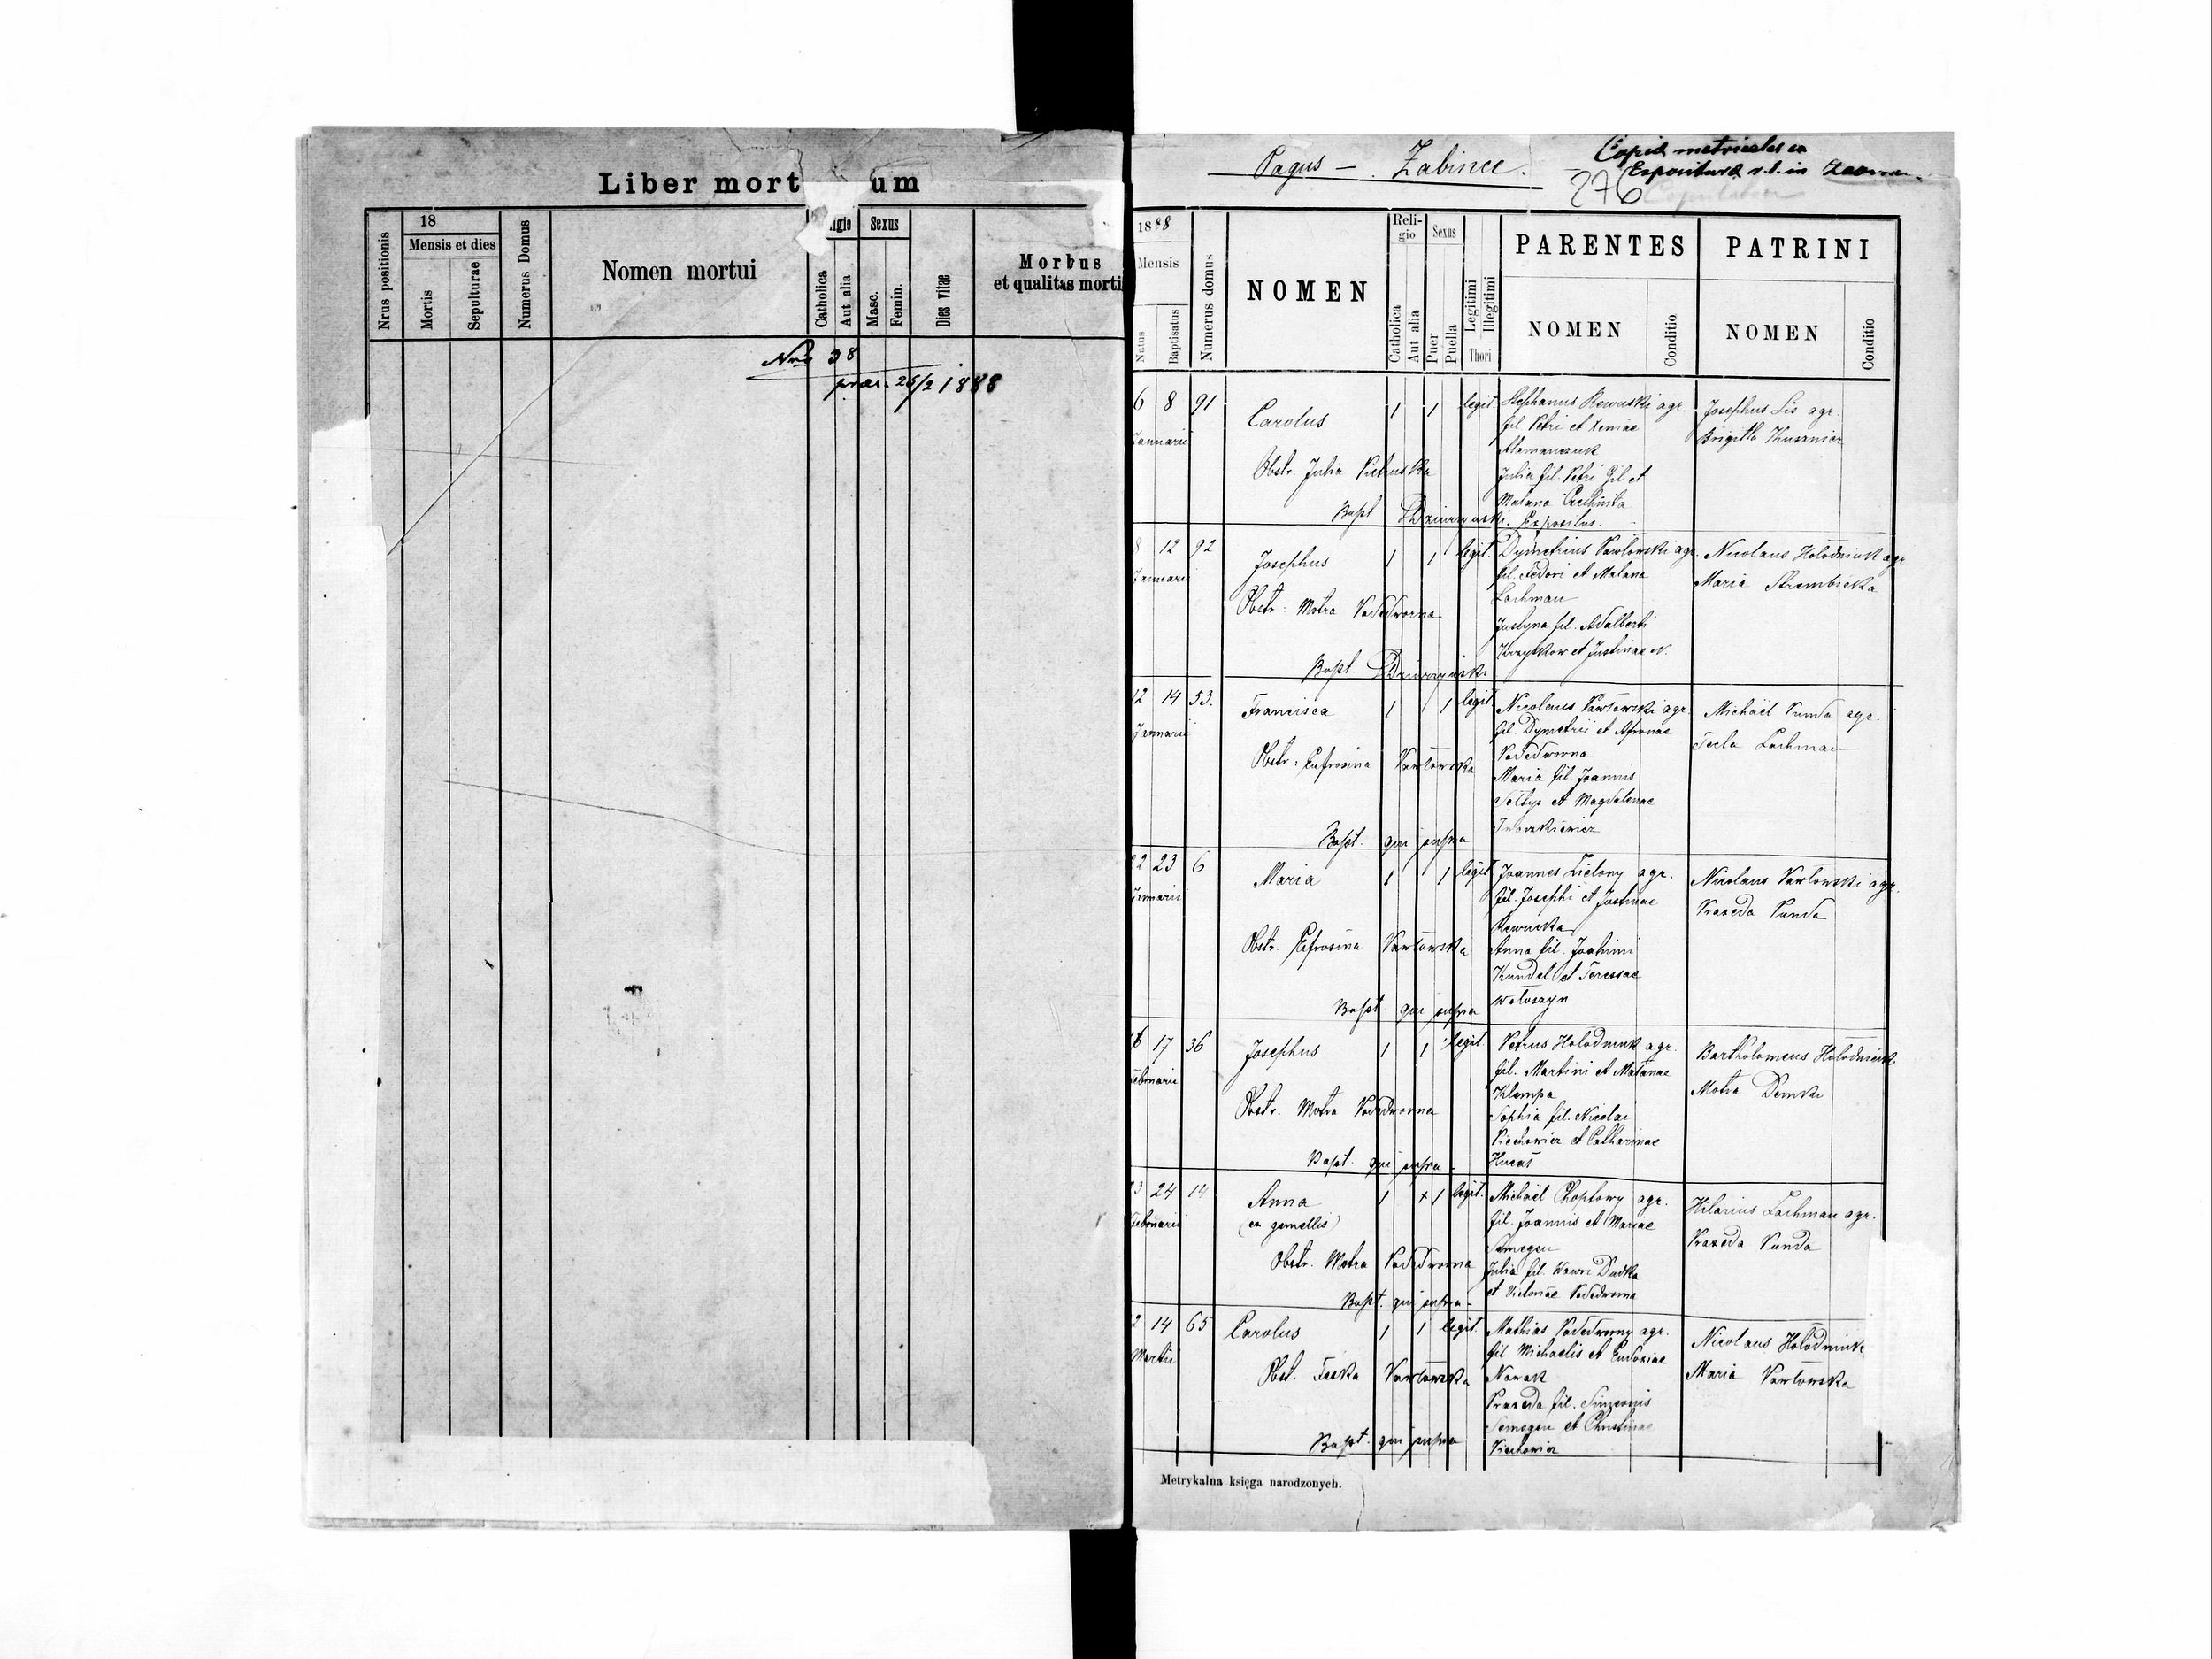 Liber mort um
Nrus positionis
18
Mensis et dies
Mortis
Sepulturae
Numerus Domus
Nomen mortui
igio
Catholica
Aut alia
Sexus
Masc.
Femin.
Dies vitae
Morbus
et qualitas morti
Nro 38
praes. 26/2 1888
Pagus — Zabince.
Copia metricales ex
Expositura r. l. in
276
1888
Mensis
Natus
Baptisatus
Numerus domus
NOMEN
Reli-
gio
Catholica
Aut alia
Sexus
Puer
Puella
Legitimi
Illegitimi
Thori
PARENTES
NOMEN
Conditio
PATRINI
NOMEN
Conditio
6 8 91 Carolus 1 1 legit. Stephanus Rewuski agr. Josephus Lis agr.
Januarii fil. Petri et Xeniae Brigitta Kusznier
Obstr. Julia
Julia fil. Petri Gil et
Malana
Bapt. Expositus.
8 12 92 Josephus 1 1 legit. Dymetrius Pawłowski agr. Nicolaus Hołodniuk agr
Januarii fil. Fedori et Malana Maria Strembicka
Lachman
Obstr. Motra Podedworna
Justyna fil. Adalberti
et Justinae N.
Bapt
12 14 53. Francisca 1 1 legit. Nicolaus Pawłowski agr. Michaël Punda agr.
Januarii fil. Dymetrii et Afronae Tecla Lachman
Obstr. Eufrosina Pawłowska Podedworna
Maria fil. Joannis
Sołtys et Magdalenae
Iwaszkiewicz
Bapt. qui supra
22 23 6 Maria 1 1 legit. Joannes Zielony agr. Nicolaus Pawłowski agr.
Januarii fil. Josephi et Justinae Praxeda Punda
Rewuska
Obstr. Eufrosina Pawłowska Anna fil. Joannis
Kundel et Teressae
Wołoszyn
Bapt qui supra
16 17 36 Josephus 1 1 legit. Petrus Hołodniuk agr. Bartholomeus Hołodniuk
Februarii fil. Martini et Małanae Motra
Klempa
Obstr. Motra Podedworna Sophia fil. Nicolai
Piechowicz et Catharinae
Bapt. qui supra
23 24 14 Anna 1 + 1 legit. Michaël Choptowy agr. Hilarius Lachman agr.
Februarii (ex gemellis) fil. Joannis et Mariae Praxeda Punda
Semegen
Obstr. Motra Podedworna Julia fil. Dudka
et Victoriae Podedworna
Bapt. qui supra
2 14 65 Carolus 1 1 legit. Mathias Podedworny agr. Nicolaus Hołodniuk
Martii fil Michaelis et Eudoxiae Maria Pawłowska
Obst. Teska Pawłowska Nowak
Praxeda fil. Simeonis
Semegen et Christinae
Piechowicz
Bapt. qui supra
Metrykalna księga narodzonych.